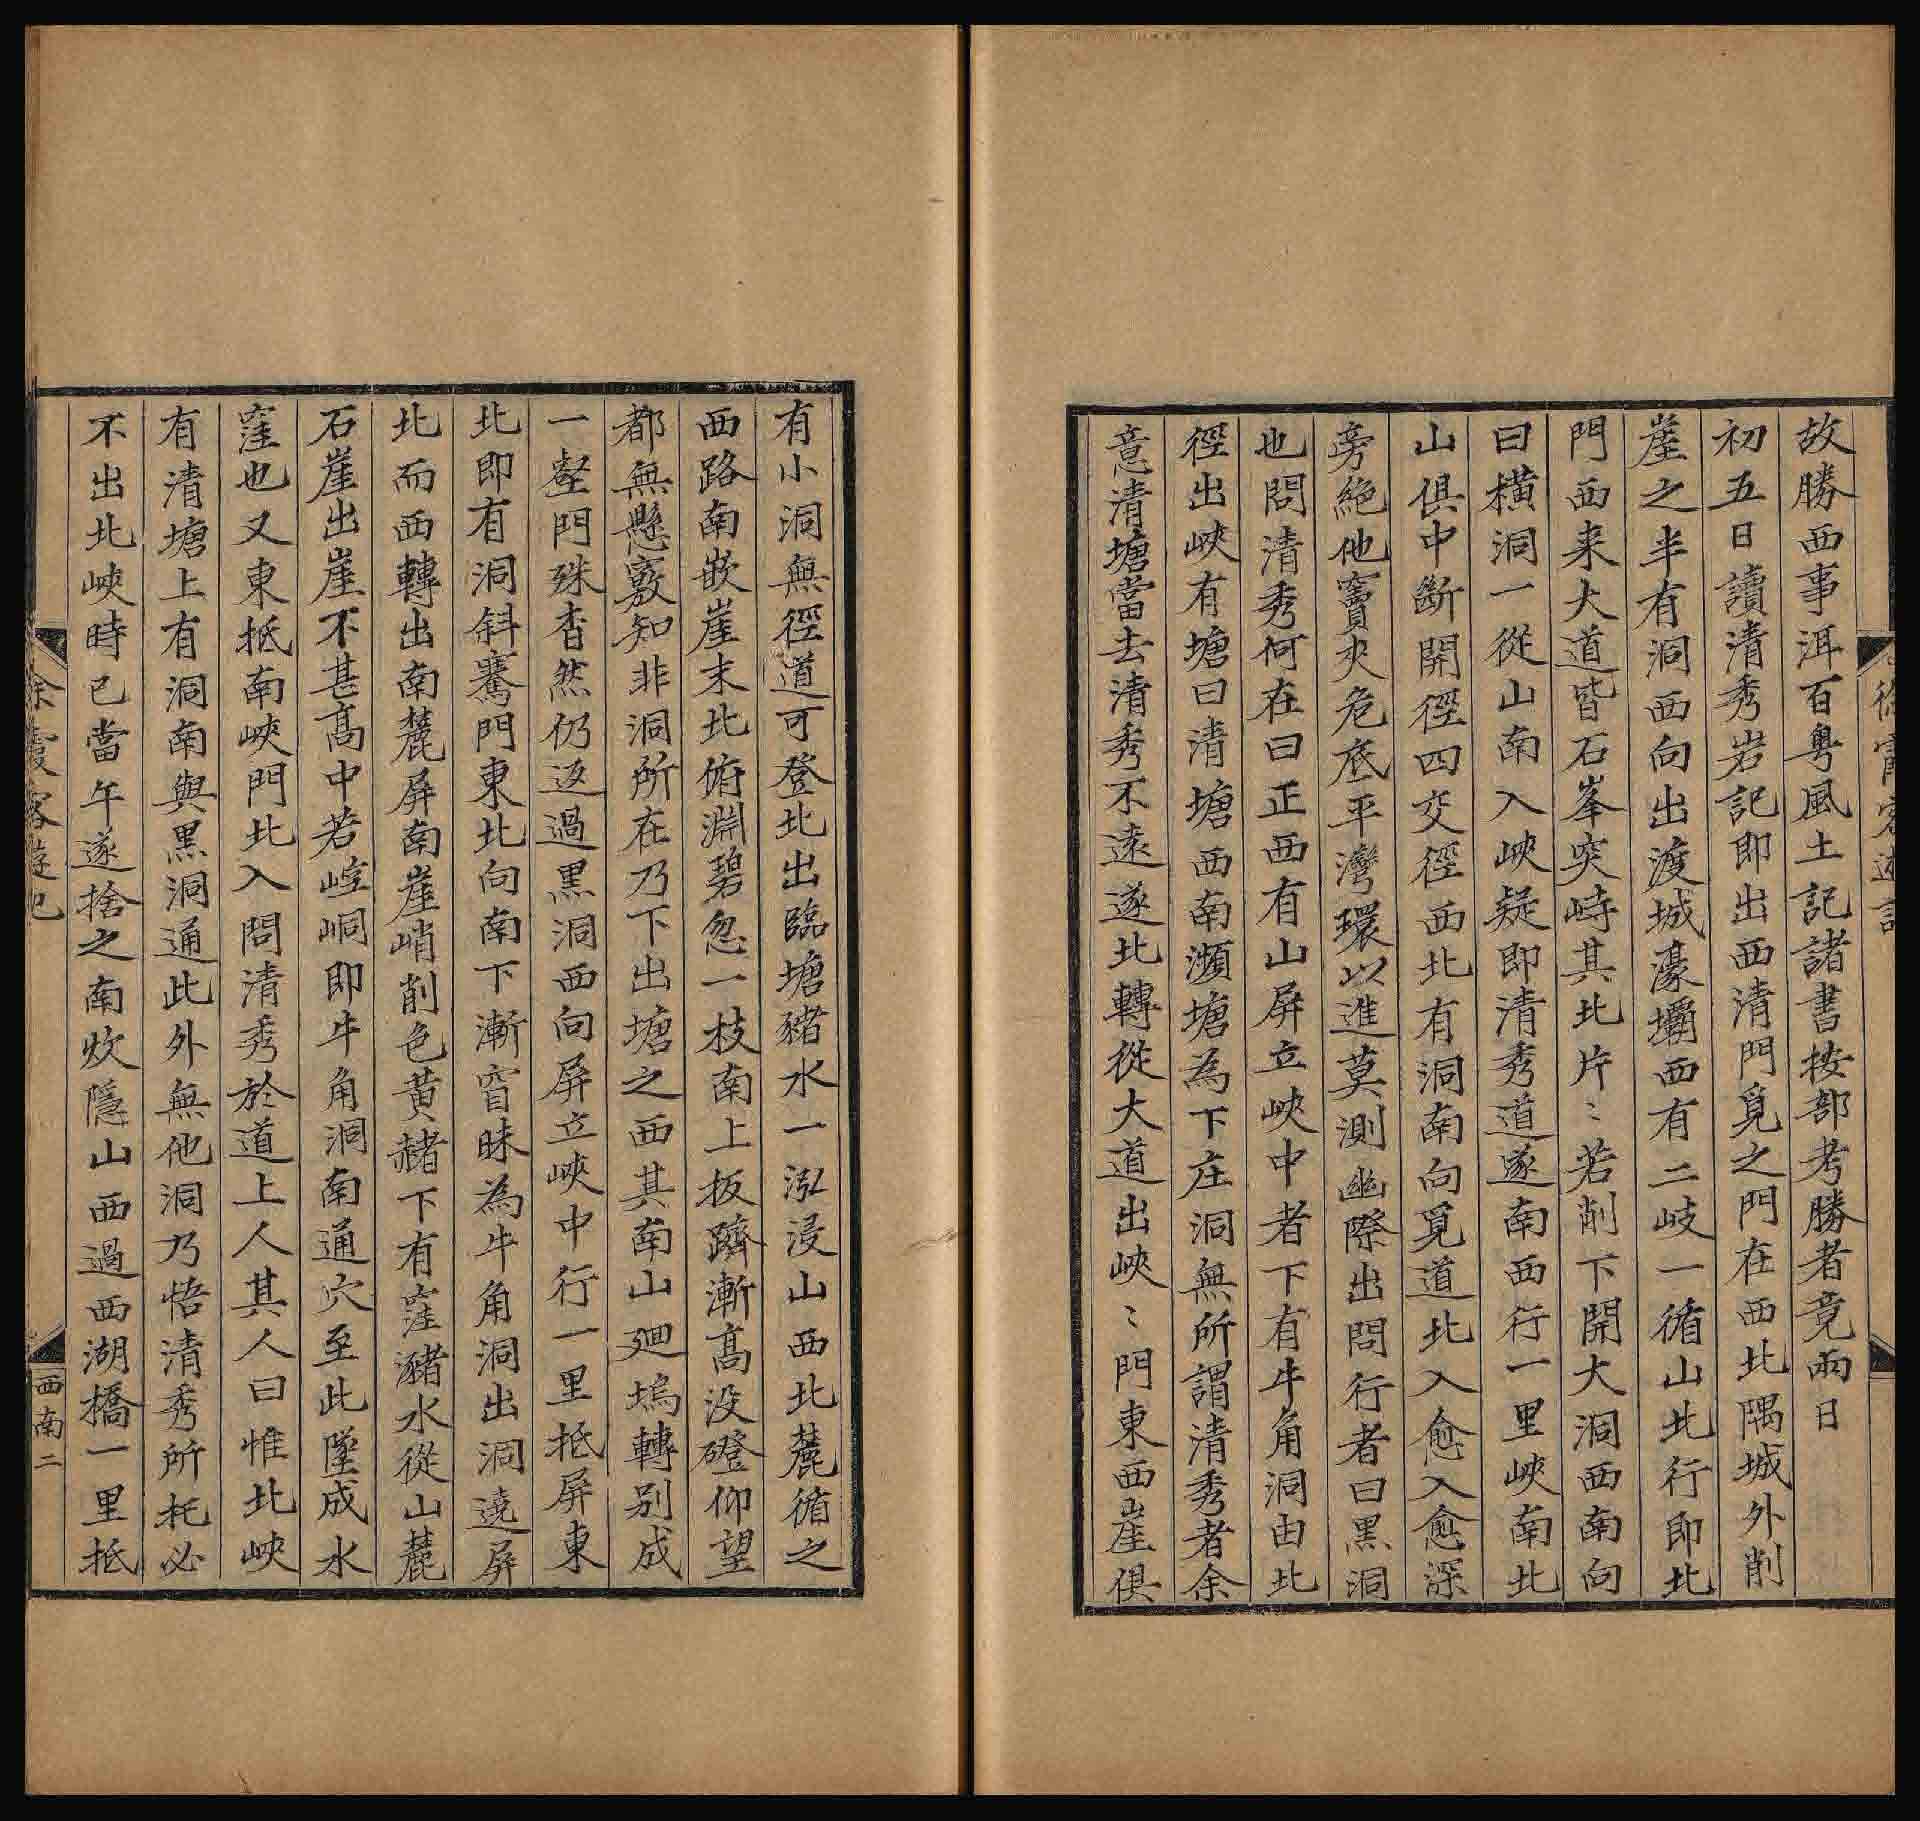 故勝西事洱百粤風土記諸書按部考勝者竟兩日
初五日讀清秀岩記即出西清門覓之門在西北隅城外削
崖之半有洞西向出渡城濠壩西有二岐一循山北行即北
門西来大道皆石峯突峙其北片〻若削下開大洞西南向
曰横洞一從山南入峽疑即清秀道遂南西行一里峽南北
山俱中斷開徑四交徑西北有洞南向覓道北入愈入愈深
旁絶他竇夾危底平灣環以進莫測幽際出問行者曰黒洞
也問清秀何在曰正西有山屏立峽中者下有牛角洞由北
徑出峽有塘曰清塘西南瀕塘為下庄洞無所謂清秀者余
意清塘當去清秀不遠遂北轉從大道出峽〻門東西崖俱
有小洞無徑道可登北出臨塘豬水一泓浸山西北麓循之
西路南嵌崖末北俯淵碧忽一枝南上扳躋漸高没磴仰望
都無懸竅知非洞所在乃下出塘之西其南山廻塢轉别成
一壑門殊杳然仍返過黒洞西向屏立峽中行一里抵屏東
北即有洞斜騫門東北向南下漸窅昧為牛角洞出洞遶屏
北而西轉出南麓屏南崖峭削色黄赭下有窪瀦水從山麓
石崖出崖不甚高中若崆峒即牛角洞南通穴至此墜成水
窪也又東抵南峽門北入問清秀於道上人其人曰惟北峽
有清塘上有洞南與黒洞通此外無他洞乃悟清秀所托必
不出北峽時已當午遂捨之南炊隱山西過西湖橋一里抵
徐霞客遊記
西南二